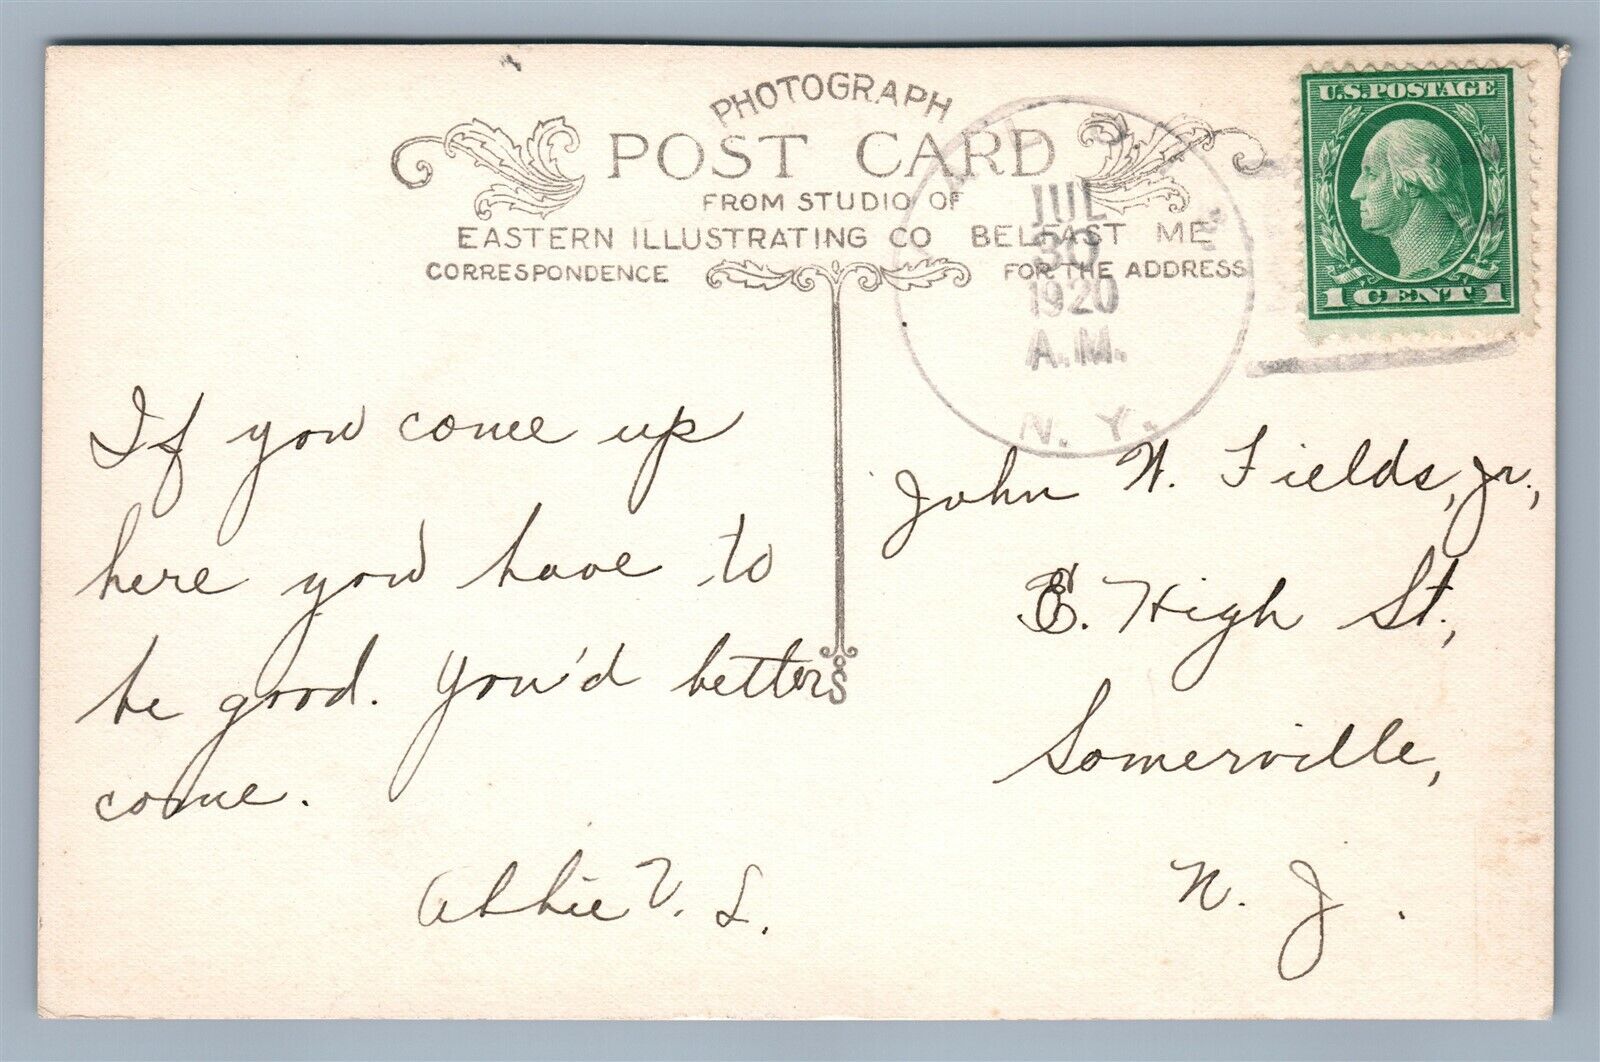 PHOTOGRAPH
POST CARD
FROM STUDIO OF
EASTERN ILLUSTRATING CO BELFAST ME
CORRESPONDENCE FOR THE ADDRESS
U.S. POSTAGE
1 CENT 1
JUL
30
1920
A.M.
N. Y.
If you come up
here you have to
be good. You'd better
come.
Abbie V. L.
John W. Fields, Jr.,
E. High St.,
Somerville,
N. J.